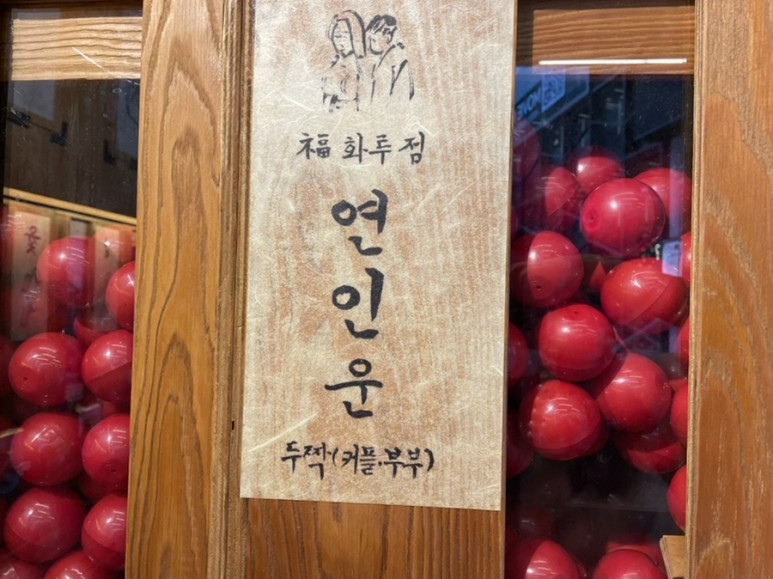 福 화투점
연
인
운
두짝(커플·부부)